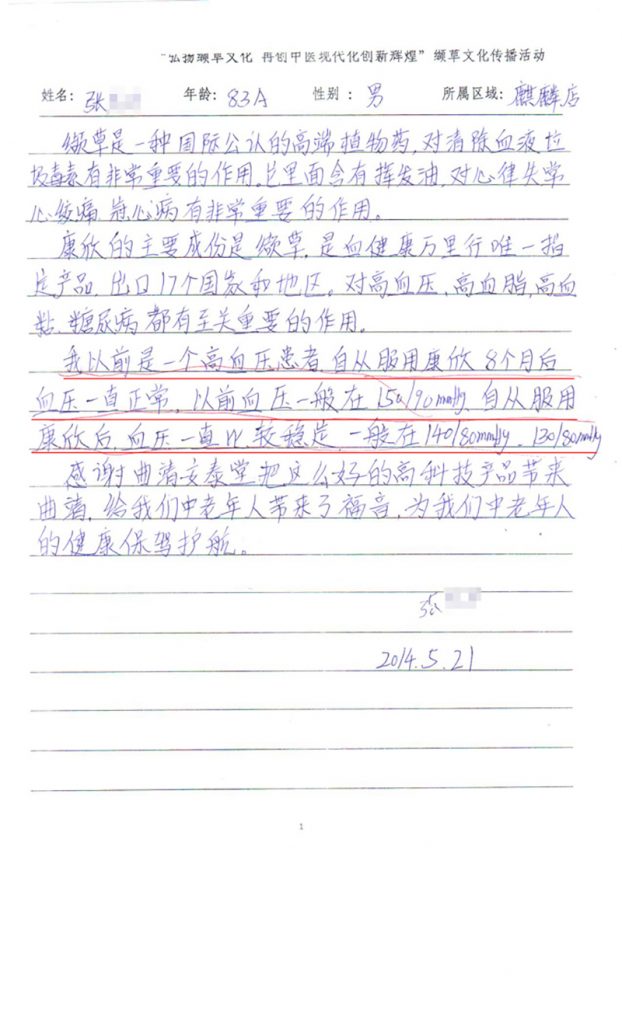 “弘扬缬草文化 再创中医现代化创新辉煌”缬草文化传播活动
姓名：张 年龄：83岁 性别：男 所属区域：麒麟店
缬草是一种国际公认的高端植物药，对清除血液垃
圾毒素有非常重要的作用。它里面含有挥发油，对心律失常
心绞痛 冠心病有非常重要的作用。
康欣的主要成份是缬草，是血健康万里行唯一指
定产品，出口17个国家和地区。对高血压、高血脂、高血
粘、糖尿病都有至关重要的作用。
我以前是一个高血压患者 自从服用康欣8个月后
血压一直正常，以前血压一般在150/90mmHg 自从服用
康欣后，血压一直比较稳定，一般在140/80mmHg、130/80mmHg
感谢曲靖安泰堂把这么好的高科技产品带来
曲靖，给我们中老年人带来了福音，为我们中老年人
的健康保驾护航。
张
2014.5.21
1